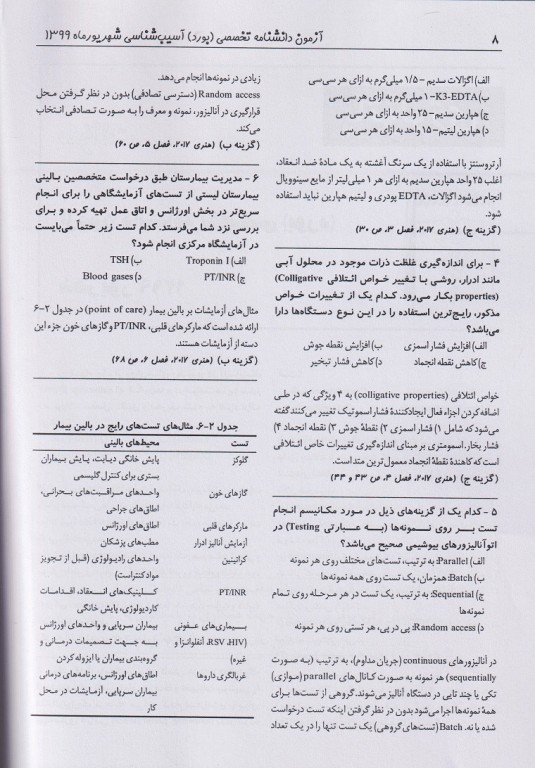 ۸
آزمون دانشنامه تخصصی (بورد) آسیب‌شناسی شهریورماه ۱۳۹۹
الف) اگزالات سدیم – ۱/۵ میلی‌گرم به ازای هر سی‌سی
ب) K3-EDTA – ۱ میلی‌گرم به ازای هر سی‌سی
ج) هپارین سدیم – ۲۵ واحد به ازای هر سی‌سی
د) هپارین لیتیم – ۱۵ واحد به ازای هر سی‌سی
آرتروسنتز با استفاده از یک سرنگ آغشته به یک مادهٔ ضد انعقاد،
اغلب ۲۵ واحد هپارین سدیم به ازای هر ۱ میلی‌لیتر از مایع سینوویال
انجام می‌شود اگزالات، EDTA پودری و لیتیم هپارین نباید استفاده
شود.
(گزینه ج) (هنری ۲۰۱۷، فصل ۳، ص ۳۰)
۴ – برای اندازه‌گیری غلظت ذرات موجود در محلول آبی
مانند ادرار، روشی با تغییر خواص ائتلافی (Colligative
properties) بکار می‌رود. کدام یک از تغییرات خواص
مذکور، رایج‌ترین استفاده را در این نوع دستگاه‌ها دارا
می‌باشد؟
الف) افزایش فشار اسمزی ب) افزایش نقطه جوش
ج) کاهش نقطه انجماد د) کاهش فشار تبخیر
خواص ائتلافی (colligative properties) به ۴ ویژگی که در طی
اضافه کردن اجزاء فعال ایجادکنندهٔ فشار اسموتیک تغییر می‌کنند گفته
می‌شود که شامل ۱) فشار اسمزی ۲) نقطهٔ جوش ۳) نقطه انجماد ۴)
فشار بخار. اسمومتری بر مبنای اندازه‌گیری تغییرات خاص ائتلافی
است که کاهندهٔ نقطهٔ انجماد معمول‌ترین متد است.
(گزینه ج) (هنری ۲۰۱۷، فصل ۴، ص ۴۳ و ۴۴)
۵ – کدام یک از گزینه‌های ذیل در مورد مکانیسم انجام
تست بر روی نمونه‌ها (به عبارتی Testing) در
اتوآنالیزورهای بیوشیمی صحیح می‌باشد؟
الف) Parallel: به ترتیب، تست‌های مختلف روی هر نمونه
ب) Batch: همزمان، یک تست روی همه نمونه‌ها
ج) Sequential: به ترتیب، یک تست در هر مرحله روی تمام
نمونه‌ها
د) Random access: پی در پی، هر تستی روی هر نمونه
در آنالیزورهای continuous (جریان مداوم)، به ترتیب (به صورت
sequentially) هر نمونه به صورت کانال‌های parallel (موازی)
تکی یا چند تایی در دستگاه آنالیز می‌شوند. گروهی از تست‌ها برای
همهٔ نمونه‌ها اجرا می‌شود بدون در نظر گرفتن اینکه تست درخواست
شده یا نه. Batch (تست‌های گروهی) یک تست تنها را در یک تعداد
زیادی در نمونه‌ها انجام می‌دهد.
Random access (دسترسی تصادفی) بدون در نظر گرفتن محل
قرارگیری در آنالیزور، نمونه و معرف را به صورت تصادفی انتخاب
می‌کند.
(گزینه ب) (هنری ۲۰۱۷، فصل ۵، ص ۶۰)
۶ – مدیریت بیمارستان طبق درخواست متخصصین بالینی
بیمارستان لیستی از تست‌های آزمایشگاهی را برای انجام
سریع‌تر در بخش اورژانس و اتاق عمل تهیه کرده و برای
بررسی نزد شما می‌فرستد. کدام تست زیر حتماً می‌بایست
در آزمایشگاه مرکزی انجام شود؟
الف) Troponin I ب) TSH
ج) PT/INR د) Blood gases
مثال‌های آزمایشات بر بالین بیمار (point of care) در جدول ۲-۶
ارائه شده است که مارکرهای قلبی، PT/INR و گازهای خون جزء این
دسته از آزمایشات هستند.
(گزینه ب) (هنری ۲۰۱۷، فصل ۶، ص ۶۸)
جدول ۲-۶. مثال‌های تست‌های رایج در بالین بیمار
تست محیط‌های بالینی
گلوکز پایش خانگی دیابت، پایش بیماران
بستری برای کنترل گلیسمی
گازهای خون واحدهای مراقبت‌های بحرانی،
اطاق‌های جراحی
مارکرهای قلبی اطاق‌های اورژانس
آزمایش آنالیز ادرار مطب‌های پزشکان
کراتینین واحدهای رادیولوژی (قبل از تجویز
مواد کنتراست)
PT/INR کلینیک‌های انعقاد، اقدامات
کاردیولوژی، پایش خانگی
بیماری‌های عفونی بیماران سرپایی و واحدهای اورژانس
(HIV، RSV، آنفلوانزا و به جهت تصمیمات درمانی و
غیره) گروه‌بندی بیماران یا ایزوله کردن
غربالگری داروها اطاق‌های اورژانس، برنامه‌های درمانی
بیماران سرپایی، آزمایشات در محل
کار